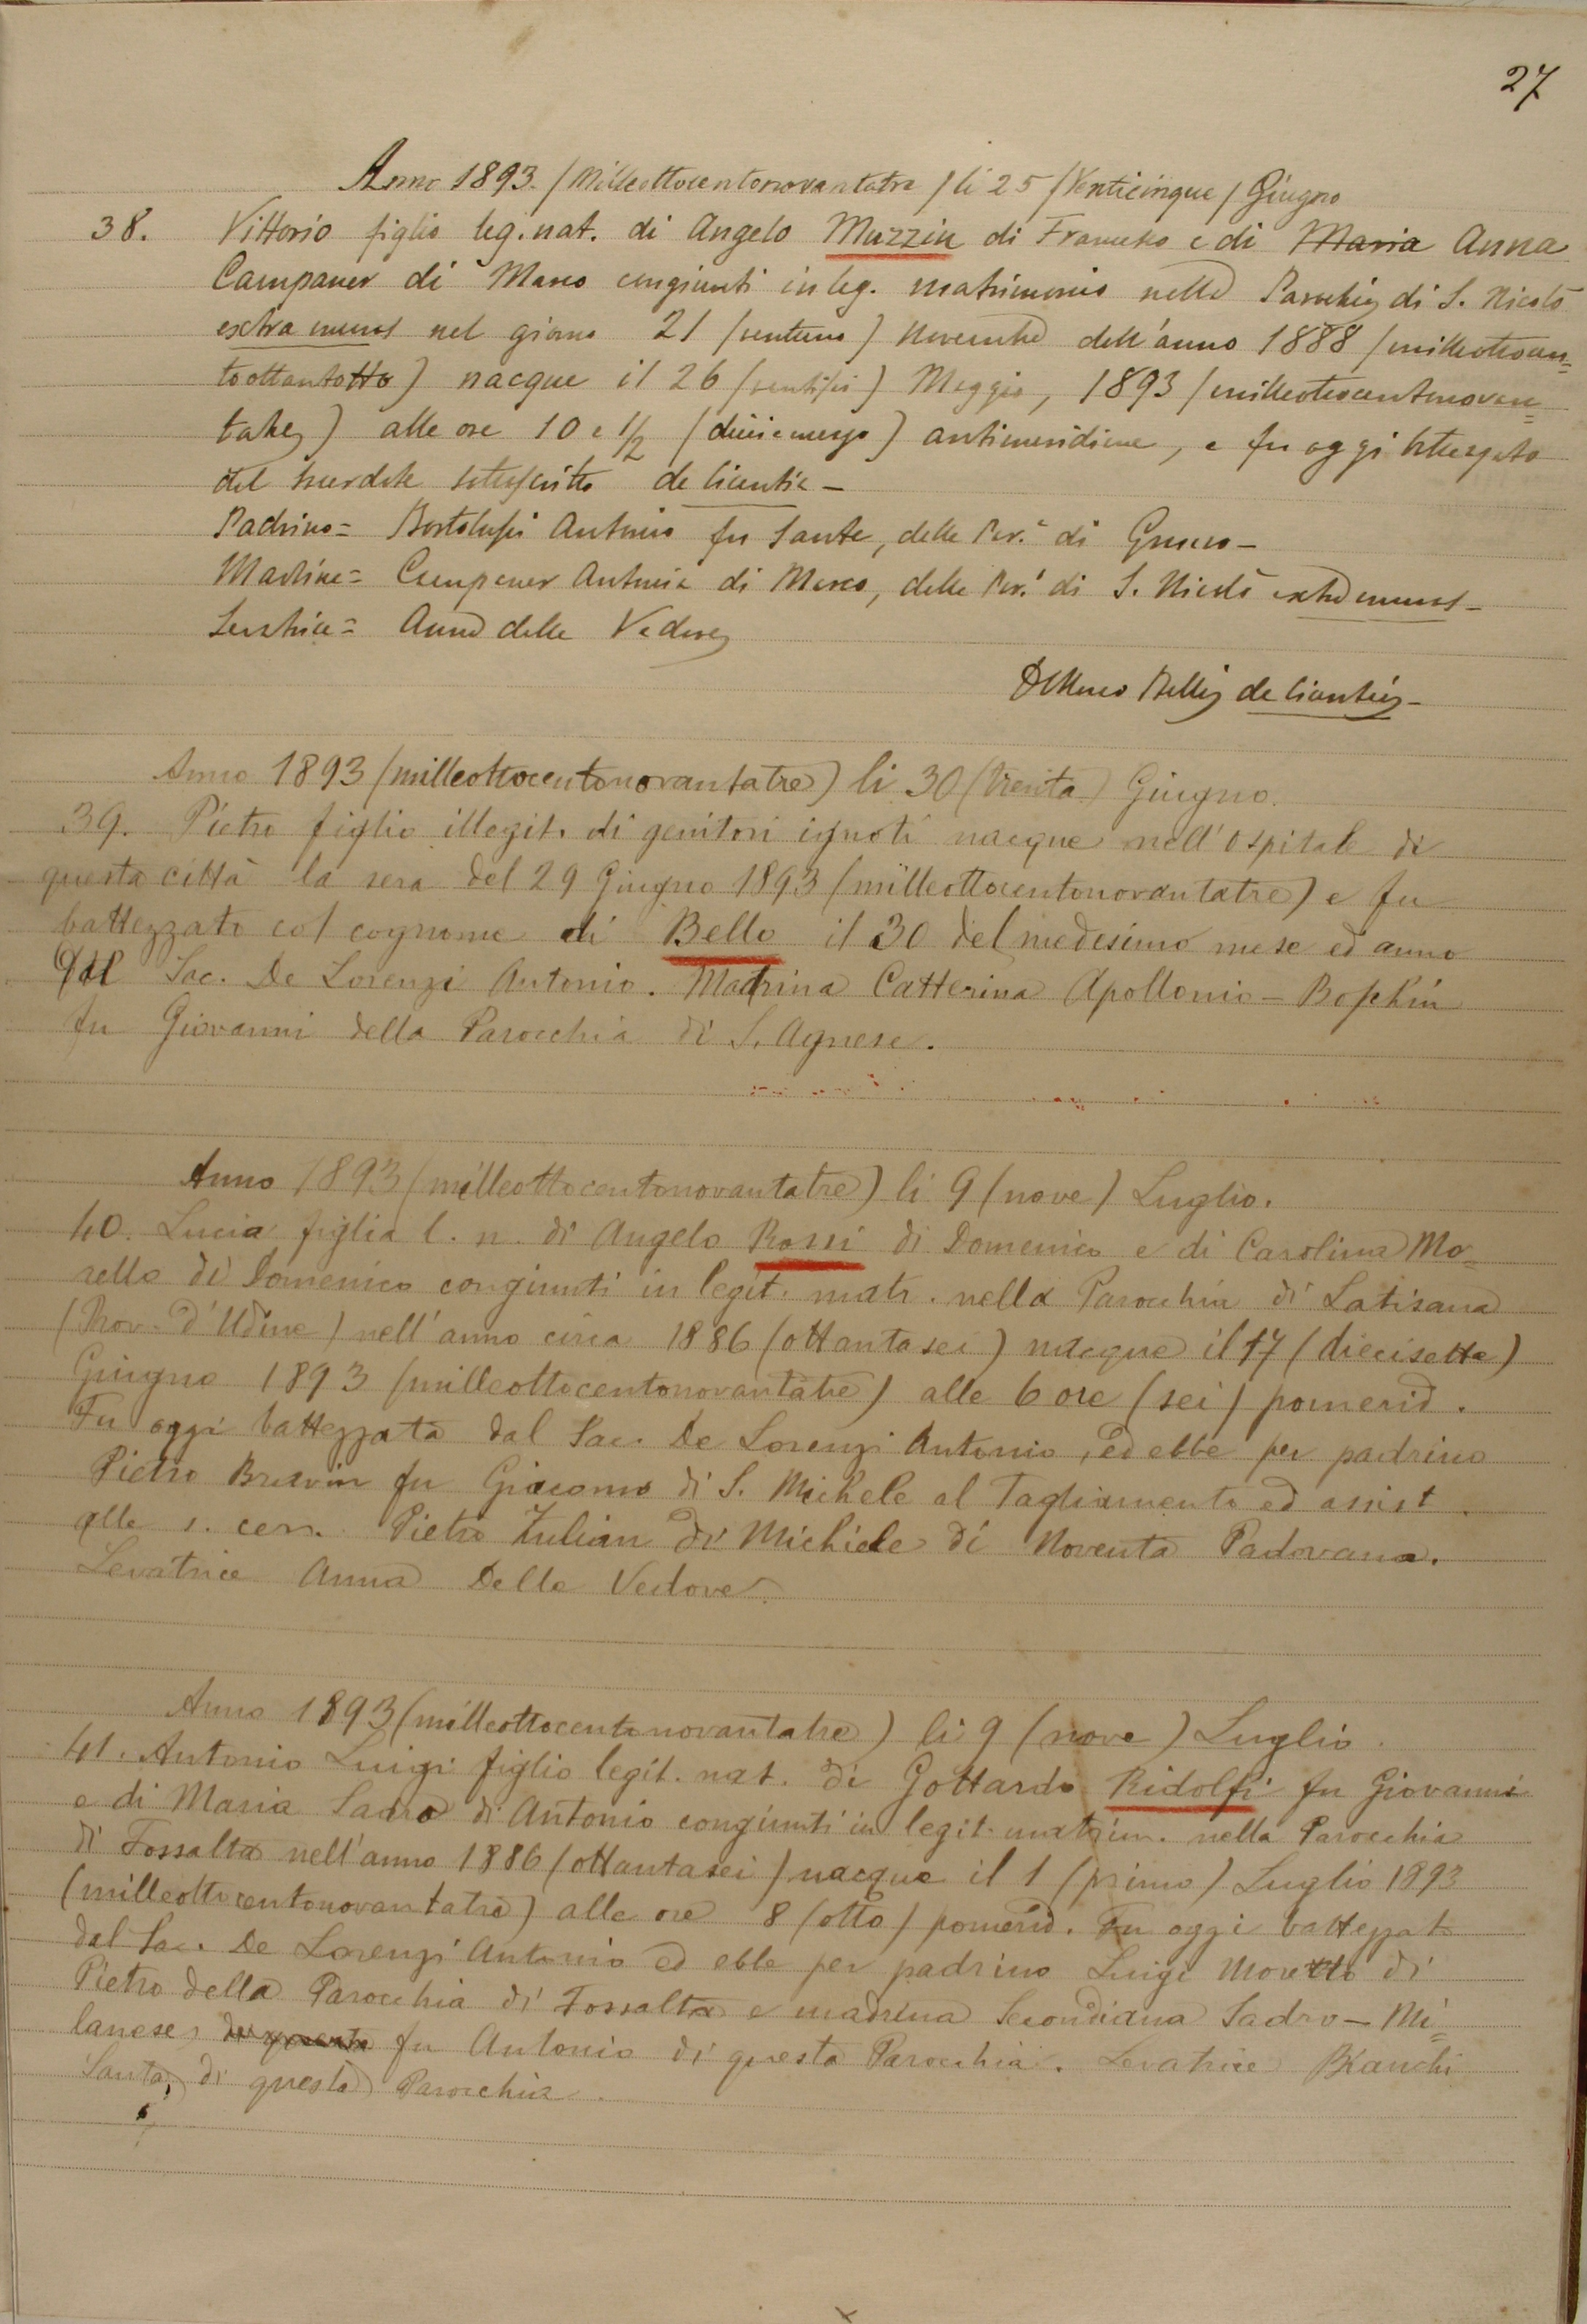 27
Anno 1893. / Milleottocentonovantatre / li 25 / Venticinque / Giugno
38. Vittorio figlio leg. nat. di Angelo Muzzin di Francesco e di Maria Anna
Campaner di Marco congiunti in leg. matrimonio nella Parochia di S. Nicolò
extra muros nel giorno 21 (ventuno) Novembre dell'anno 1888 (milleottocen=
toottantotto) nacque il 26 (ventisei) Maggio, 1893 (milleottocentonovan=
tatre) alle ore 10 e 1/2 (dieci e mezzo) antimeridiane, e fu oggi battezzato
dal sacerdote sottoscritto de licentia -
Padrino = Bortolussi Antonio fu Sante, della Par.a di Gruaro -
Madrina = Campaner Antonia di Marco, della Par.a di S. Nicolò extra muros -
Levatrice = Anna delle Vedove
D. Marco Belli de licentia -
Anno 1893 (milleottocentonovantatre) li 30 (trenta) Giugno.
39. Pietro figlio illegit. di genitori ignoti nacque nell'ospitale di
questa città la sera del 29 Giugno 1893 (milleottocentonovantatre) e fu
battezzato col cognome di Bello il 30 del medesimo mese ed anno
dal Sac. De Lorenzi Antonio. Madrina Catterina Apollonio - Boschin
fu Giovanni della Parocchia di S. Agnese.
Anno 1893 (milleottocentonovantatre) li 9 (nove) Luglio.
40. Lucia figlia l. n. di Angelo Rossi di Domenico e di Carolina Mo=
rello di Domenico congiunti in legit. matr. nella Parocchia di Latisana
(Prov. d'Udine) nell'anno circa 1886 (ottantasei) nacque il 17 (diecisette)
Giugno 1893 (milleottocentonovantatre) alle 6 ore (sei) pomerid.
Fu oggi battezzata dal Sac. De Lorenzi Antonio, ed ebbe per padrino
Pietro Bravin fu Giacomo di S. Michele al Tagliamento ed assist.
alla s. cer. Pietro Zulian di Michiele di Noventa Padovana.
Levatrice Anna Delle Vedove
Anno 1893 (milleottocentonovantatre) li 9 (nove) Luglio.
41. Antonio Luigi figlio legit. nat. di Gottardo Ridolfi fu Giovanni
e di Maria Sadro di Antonio congiunti in legit. matrim. nella Parocchia
di Fossalta nell'anno 1886 (ottantasei) nacque il 1 (primo) Luglio 1893
(milleottocentonovantatre) alle ore 8 (otto) pomerid. Fu oggi battezzato
dal Sac. De Lorenzi Antonio ed ebbe per padrino Luigi Moretto di
Pietro della Parocchia di Fossalta e madrina Secondiana Sadro - Mi=
lanese, fu Antonio di questa Parocchia. Levatrice Bianchi
Santa, di questa Parocchia.